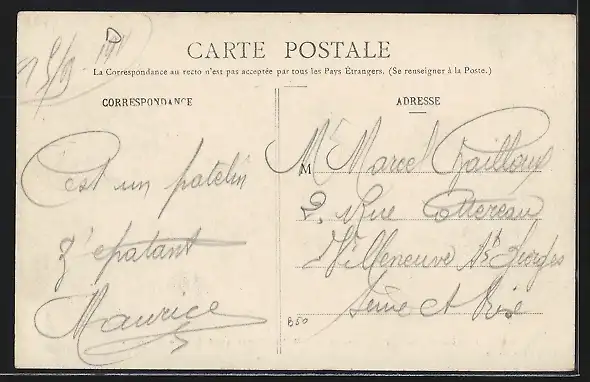 CARTE POSTALE
La Correspondance au recto n'est pas acceptée par tous les Pays Étrangers. (Se renseigner à la Poste.)
CORRESPONDANCE
C'est un patelin
d'epatant
Maurice
ADRESSE
M
Mr Marcel
2. Rue Cottereau
Villeneuve St Georges
Seine et Oise
B50